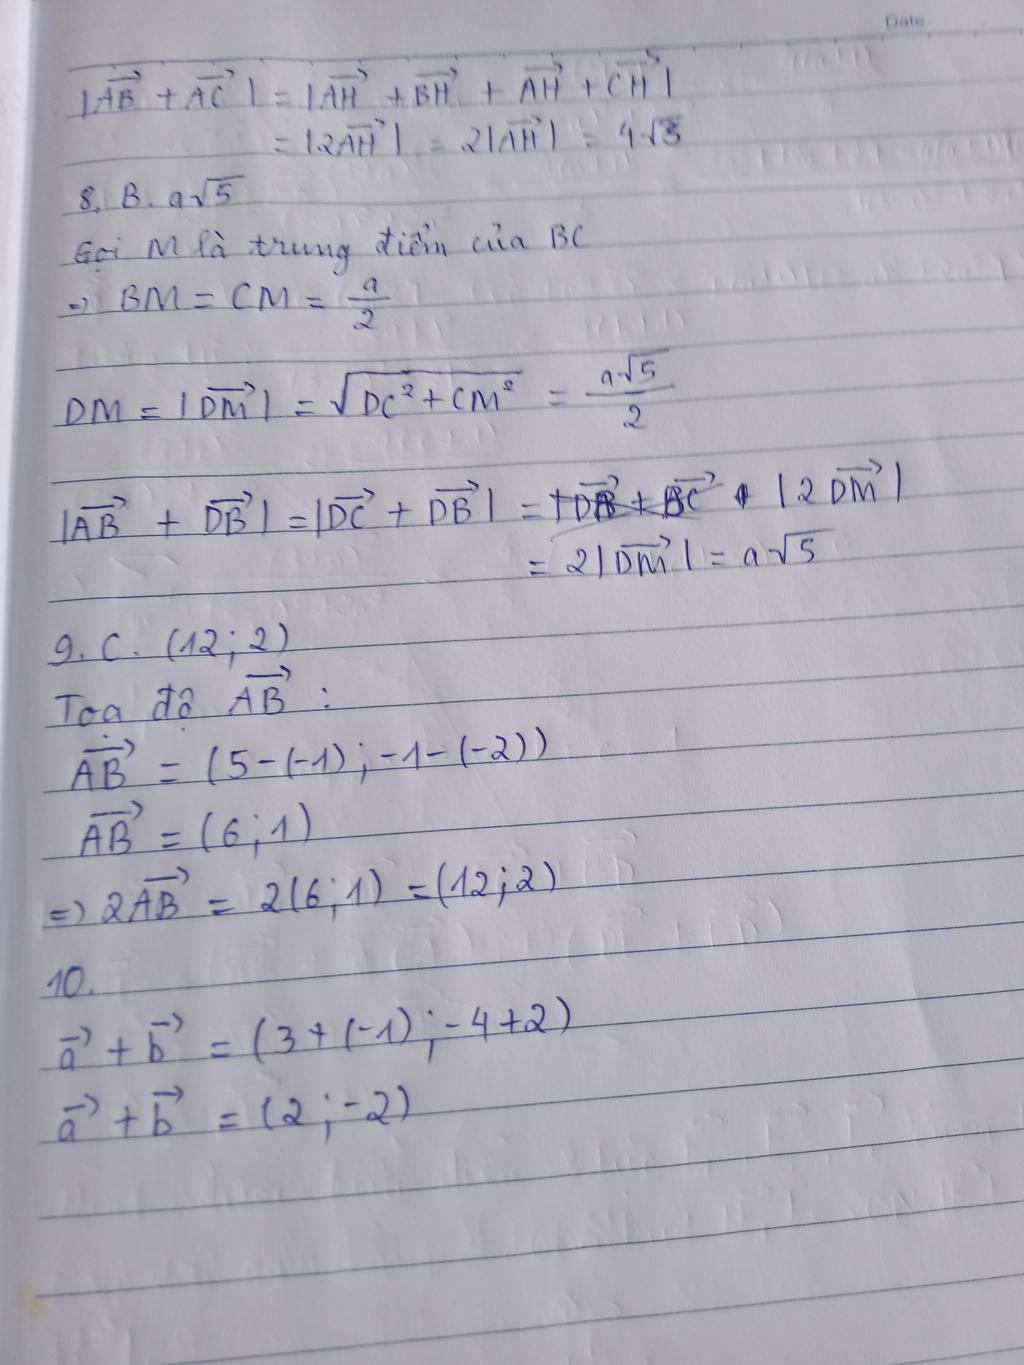 Date
|AB→ + AC→| = |AH→ + BH→ + AH→ + CH→|
= |2AH→| = 2|AH→| = 4√3
8. B. a√5
Gọi M là trung điểm của BC
=> BM = CM = a/2
DM = |DM→| = √(DC² + CM²) = a√5/2
|AB→ + DB→| = |DC→ + DB→| = |2DM→|
= 2|DM→| = a√5
9. C. (12; 2)
Tọa độ AB→ :
AB→ = (5-(-1); -1-(-2))
AB→ = (6; 1)
=> 2AB→ = 2(6; 1) = (12; 2)
10.
a→ + b→ = (3+(-1); -4+2)
a→ + b→ = (2; -2)